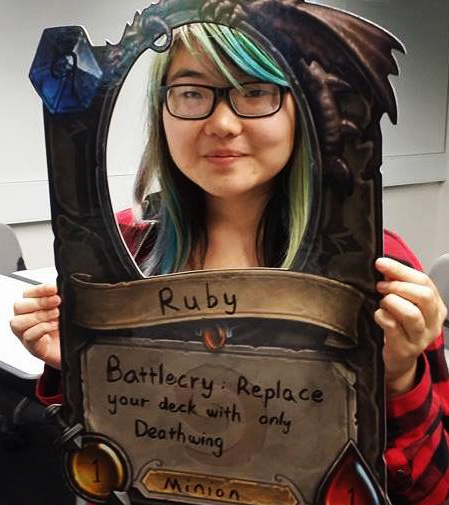 Ruby
Battlecry: Replace
your deck with only
Deathwing
1
Minion
1